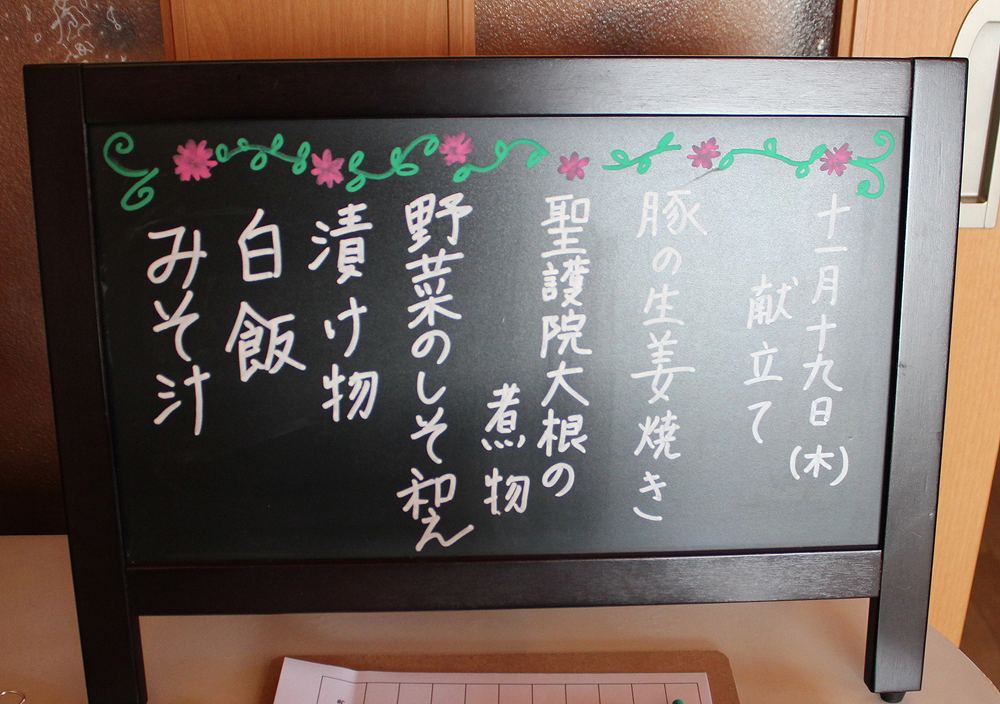 十一月十九日(木)
献立て
豚の生姜焼き
聖護院大根の
煮物
野菜のしそ和え
漬け物
白飯
みそ汁